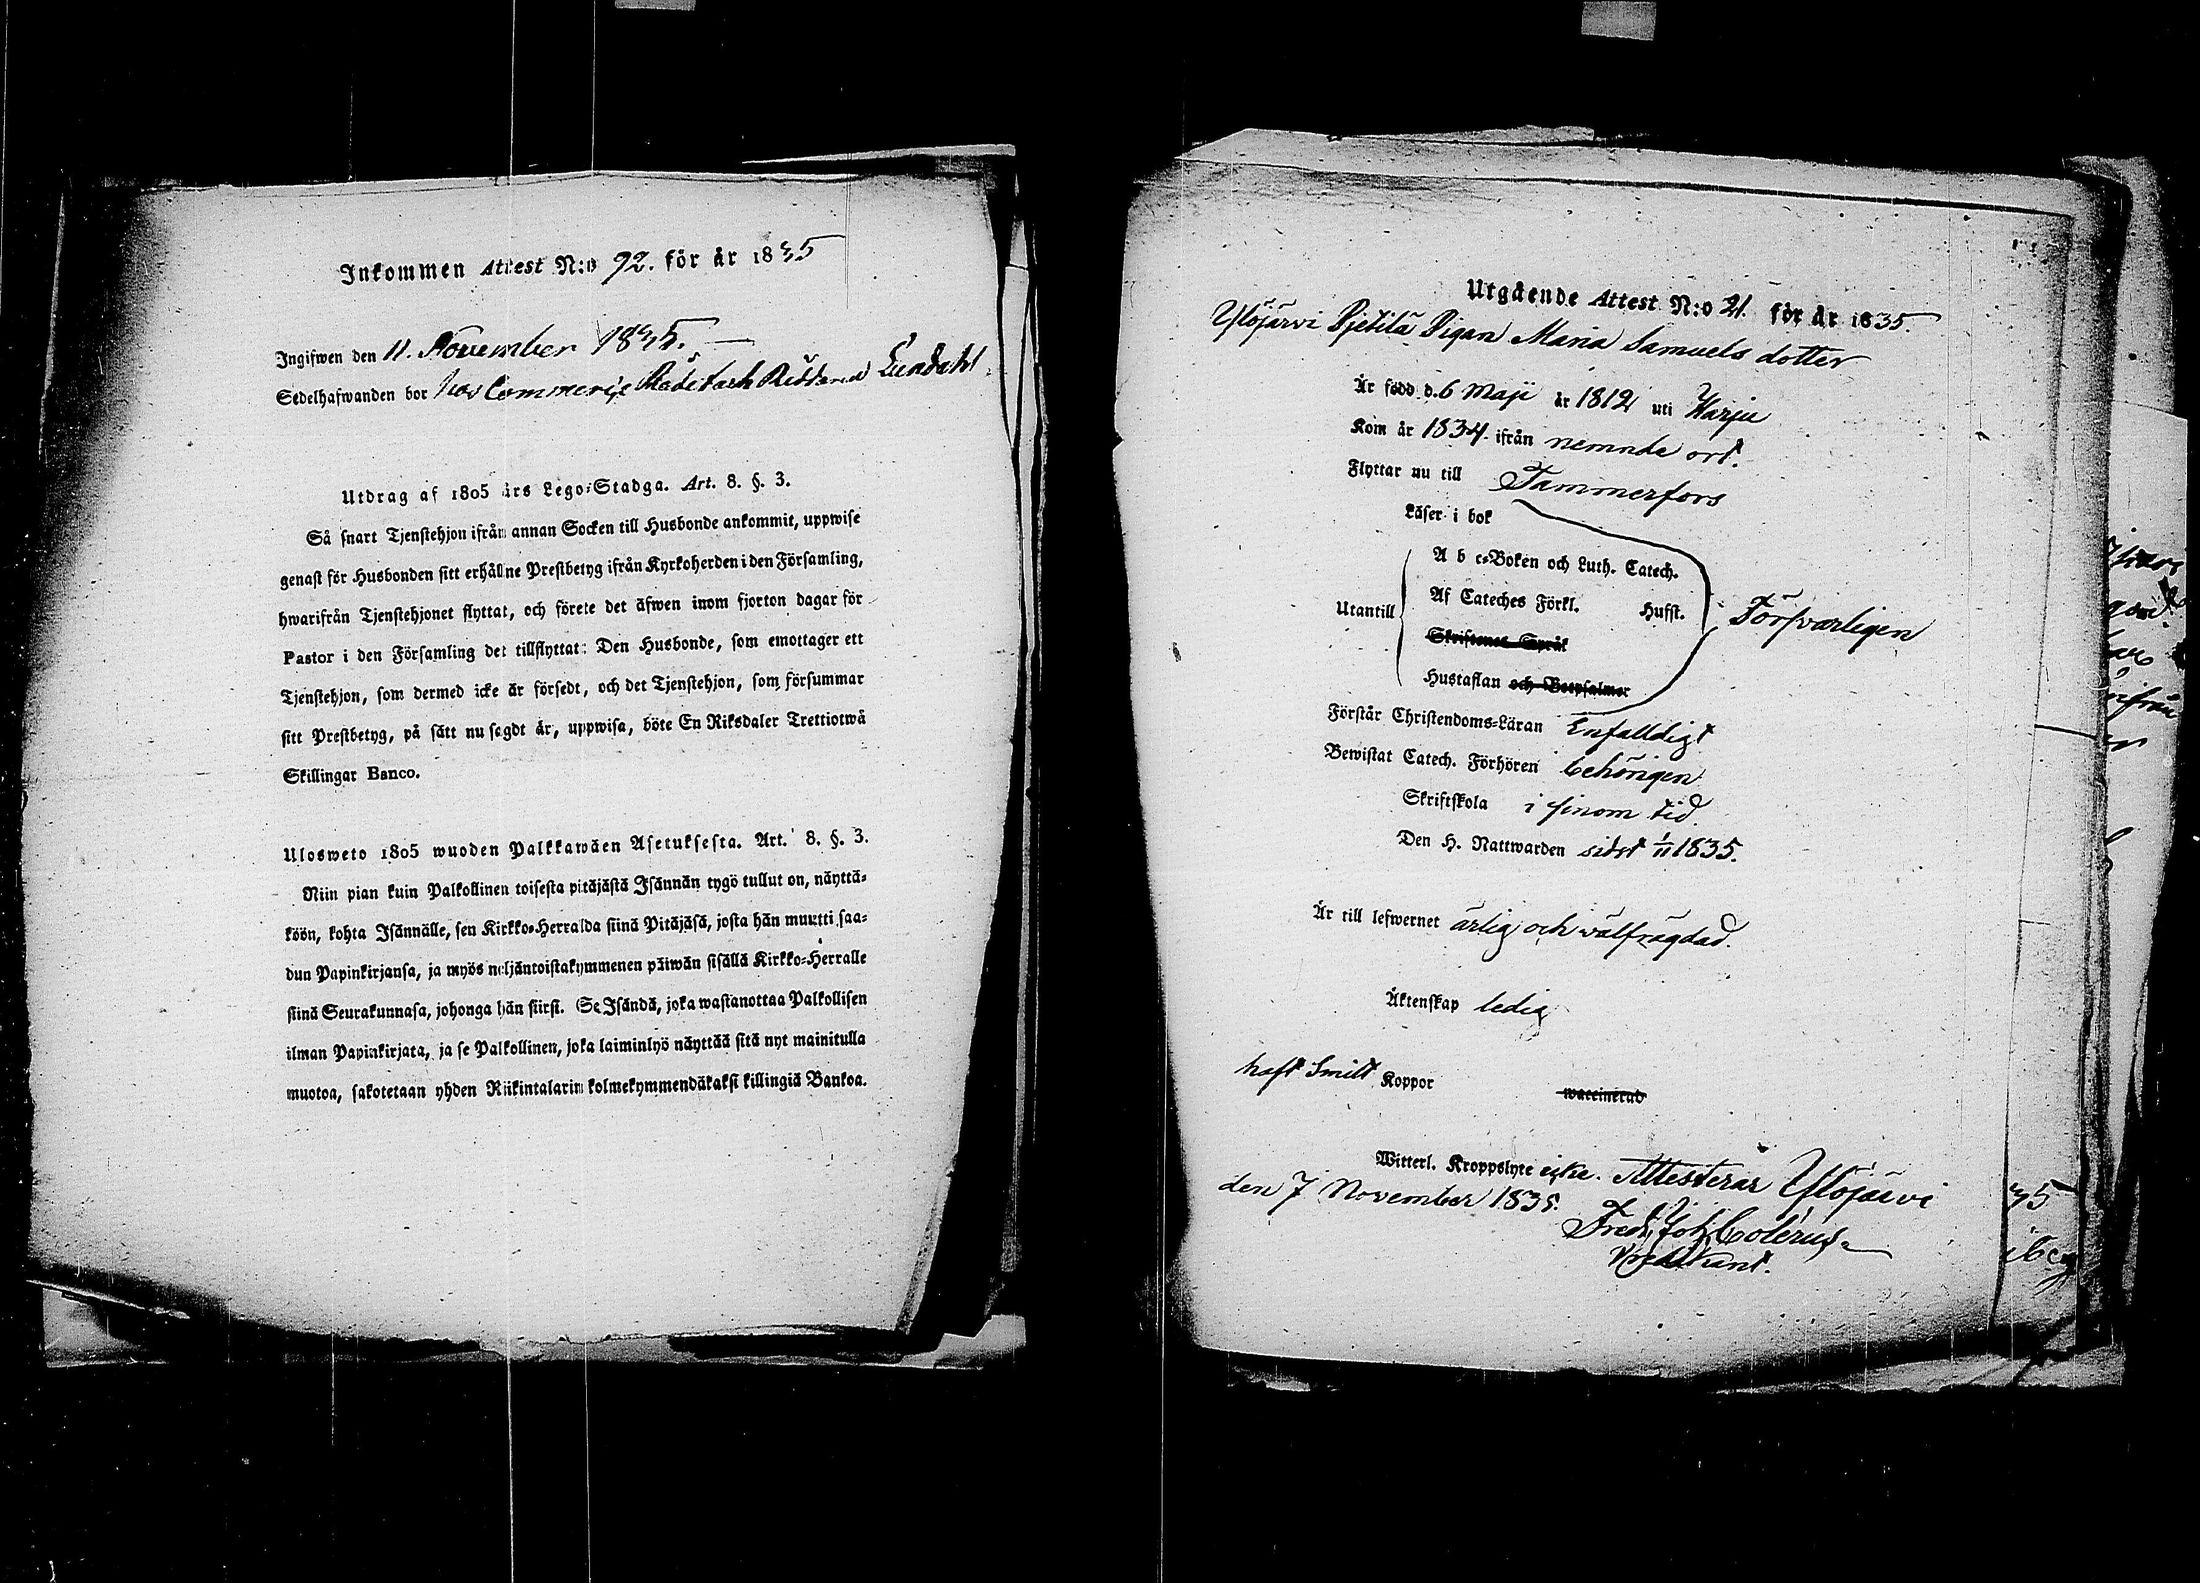 Inkommen Attest N:o 92. för år 1835
Ingifwen den 11. November 1835.
Sedelhafwanden bor hos Commercie Rådet och Riddaren Lundahl.
Utdrag af 1805 års Lego-Stadga. Art. 8. §. 3.
Så snart Tjenstehjon ifrån annan Socken till Husbonde ankommit, uppwise
genast för Husbonden sitt erhållne Prestbetyg ifrån Kyrkoherden i den Församling,
hwarifrån Tjenstehjonet flyttat, och förete det äfwen inom fjorton dagar för
Pastor i den Församling det tillflyttat: Den Husbonde, som emottager ett
Tjenstehjon, som dermed icke är försedt, och det Tjenstehjon, som försummar
sitt Prestbetyg, på sätt nu sagdt är, uppwisa, böte En Riksdaler Trettiotwå
Skillingar Banco.
Ulosweto 1805 wuoden Palkkawäen Asetuksesta. Art. 8. §. 3.
Niin pian kuin Palkollinen toisesta pitäjästä Isännän tygö tullut on, näyttä-
köön, kohta Isännälle, sen Kirkko-Herralda siinä Pitäjäsä, josta hän muutti saa-
dun Papinkirjansa, ja myös neljäntoistakymmenen päiwän sisällä Kirkko-Herralle
siinä Seurakunnasa, johonga hän siirsi. Se Isändä, joka wastanottaa Palkollisen
ilman Papinkirjata, ja se Palkollinen, joka laiminlyö näyttää sitä nyt mainitulla
muotoa, sakotetaan yhden Riikintalarin kolmekymmendäkaksi killingiä Bankoa.
Utgående Attest N:o 21. för år 1835.
Ylöjärvi Pjetilä Pigan Maria Samuels dotter
Är född d. 6 Maji år 1812 uti Harju
Kom år 1834. ifrån nemnde ort.
Flyttar nu till Tammerfors
Läser i bok
A b c-Boken och Luth. Catech.
Utantill Af Cateches Förkl. Hufst. Försvarligen
Skriftenes Språk
Hustaflan och Botpsalmer
Förstår Christendoms-Läran Enfalldigt
Bewistat Catech. Förhören behörigen
Skriftskola i sinom tid.
Den H. Nattwarden sidst 1/11 1835.
Är till lefwernet ärlig och välfrägdad.
Äktenskap ledig
haft Smitt Koppor waccinerad
Witterl. Kroppslyte icke. Attesterar Ylöjärvi
den 7 November 1835.
Fredr. Joh. Colérus